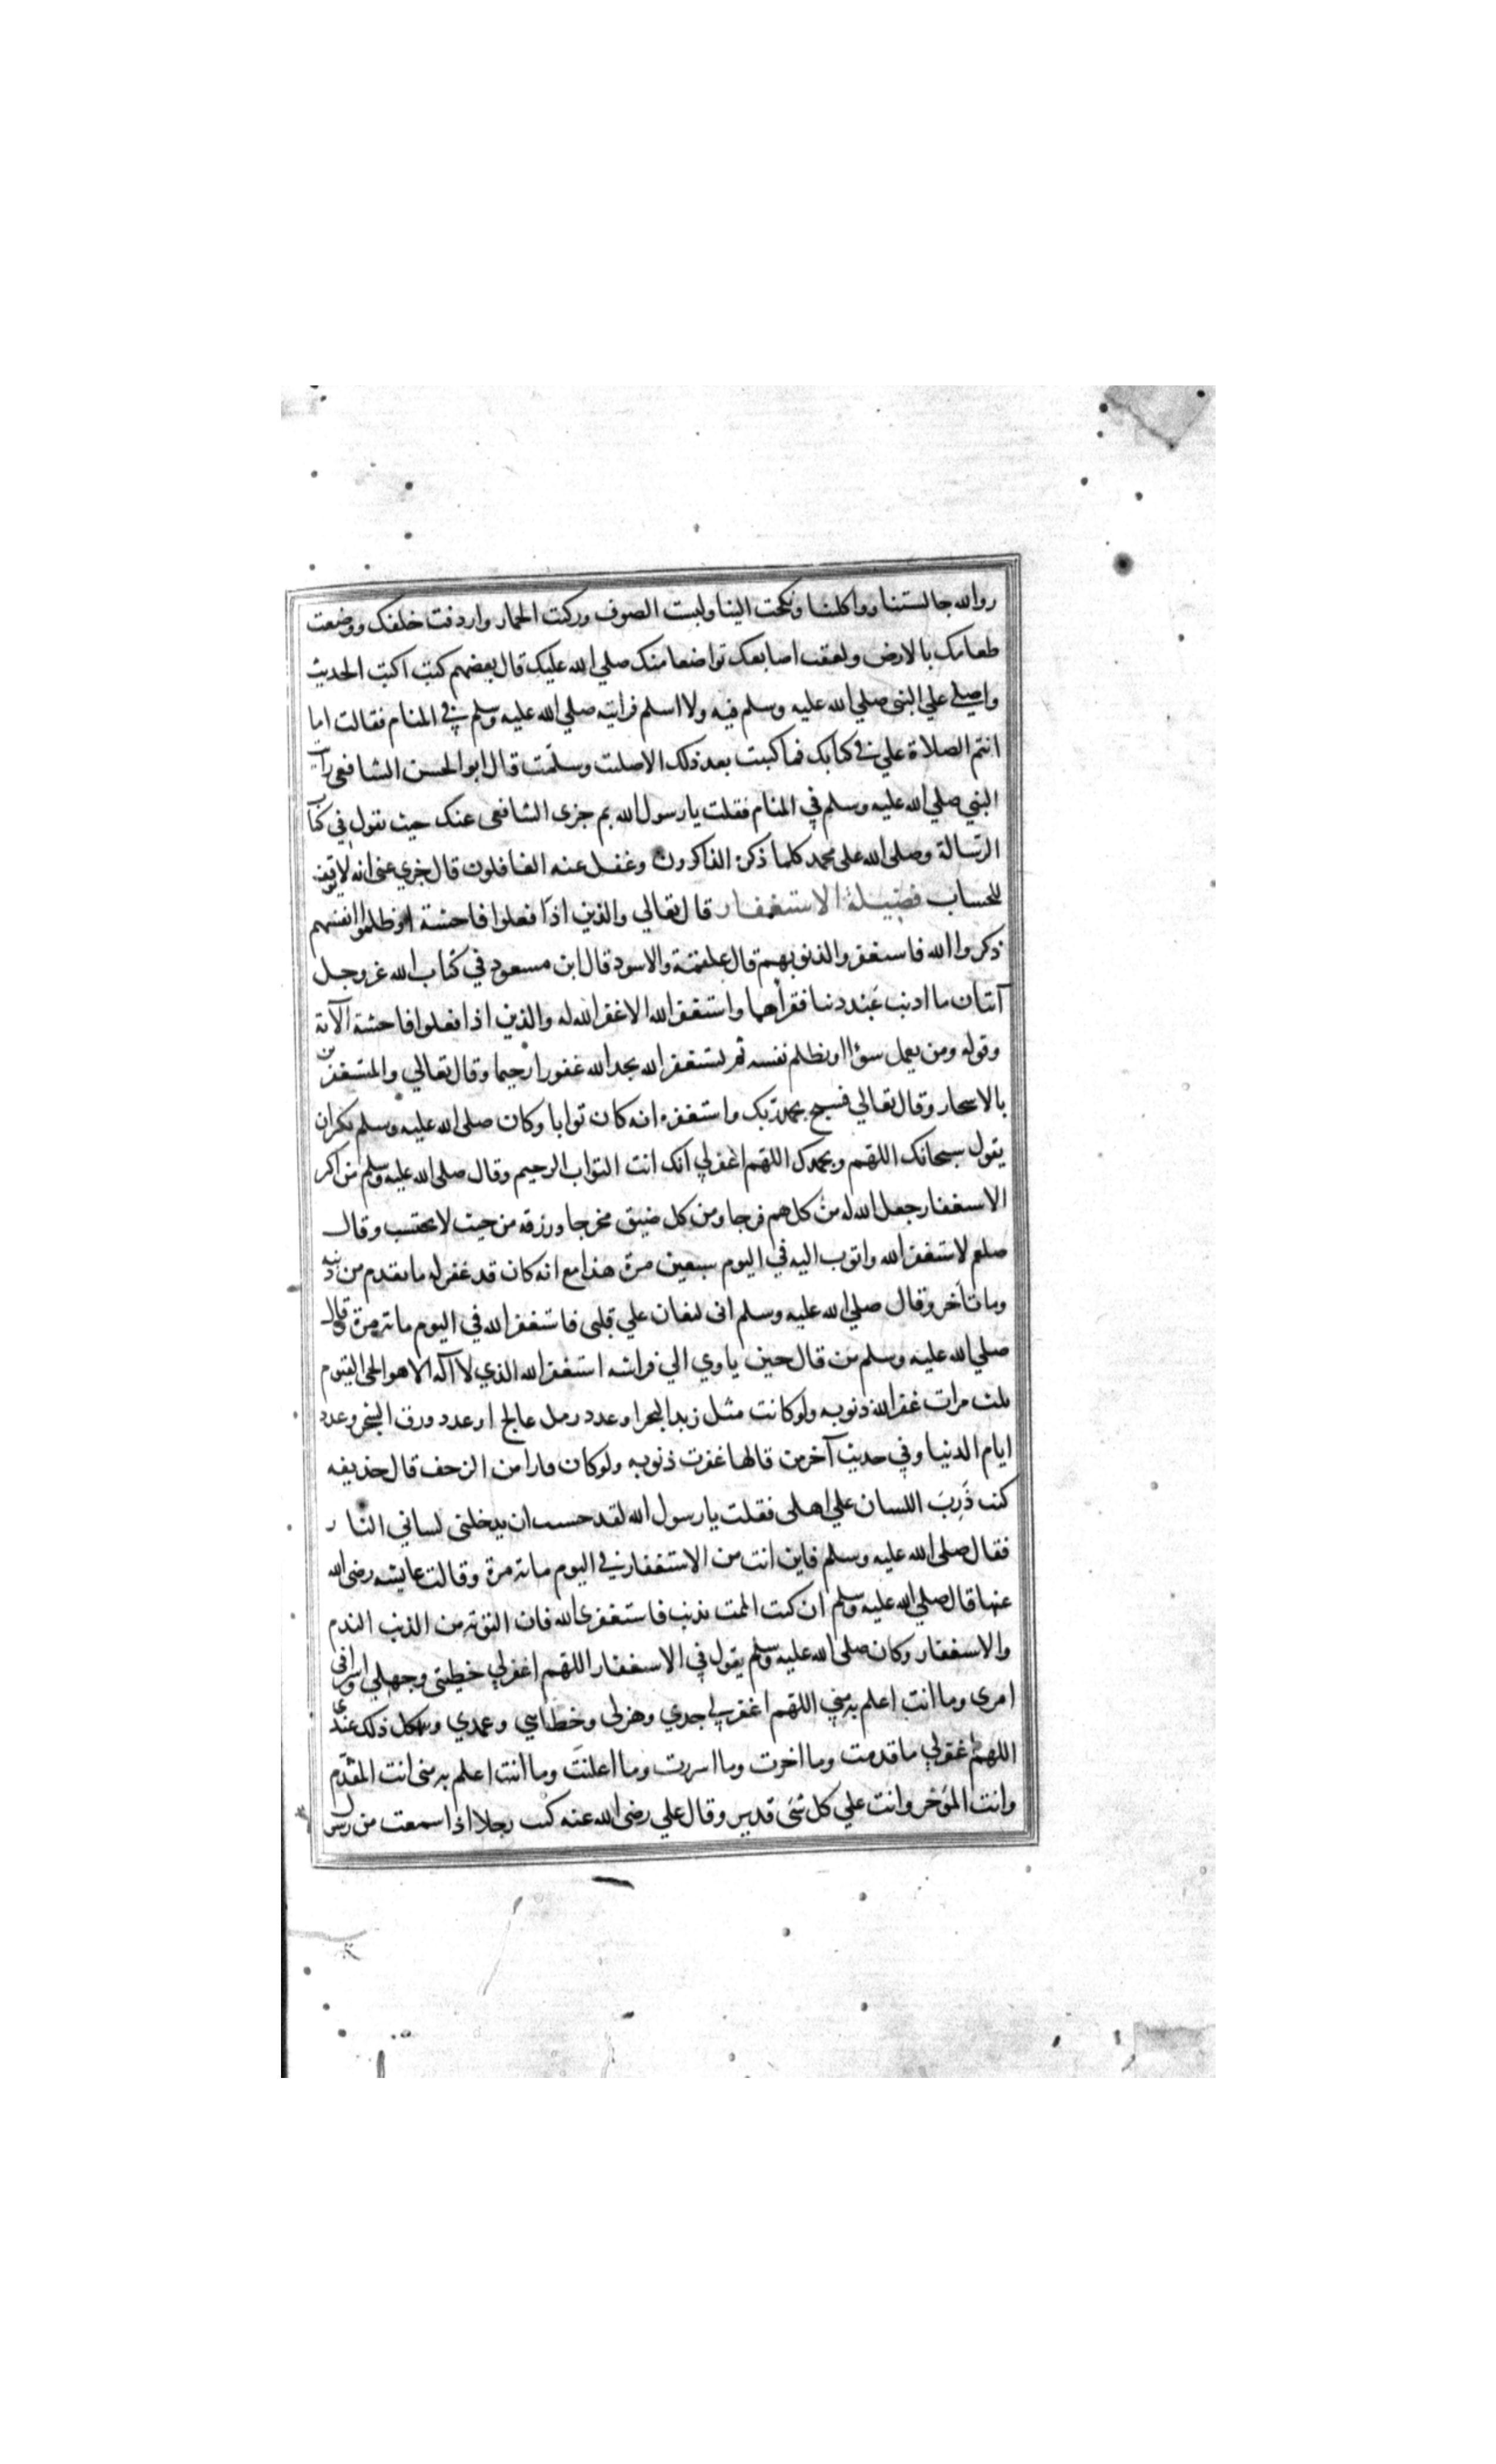 روالله جالستنا وواكلتنا ونكحت الينا ولبست الصوف وركبت الحمار واردفت خلفك ووضعت
طعامك بالارض ولعقت اصابعك تواضعا منك صلي الله عليك قال بعضهم كنت اكتب الحديث
واصلي علي النبي صلي الله عليه وسلم فيه ولا اسلم فرايته صلي الله عليه وسلم في المنام فقالت اما
انتم الصلاة علي في كتابك فما كتبت بعد ذلك الا صليت وسلمت قال ابو الحسن الشافعي رايت
النبي صلي الله عليه وسلم في المنام فقلت يا رسول الله بم جزى الشافعي عنك حيث نقول في كتاب
الرسالة وصلى الله على محمد كلما ذكره الذاكرون وغفل عنه الغافلون قال جزي عني انه لا يوقف
للحساب فضيلة الاستغفار قال تعالي والذين اذا فعلوا فاحشة او ظلموا انفسهم
ذكروا الله فاستغفروا لذنوبهم قال علقمة والاسود قال ابن مسعود في كتاب الله عز وجل
آيتان ما اذنب عبد ذنبا فقراهما واستغفر الله الا غفر الله له والذين اذا فعلوا فاحشة الآية
وقوله ومن يعمل سوءا او يظلم نفسه ثم يستغفر الله يجد الله غفورا رحيما وقال تعالي والمستغفرين
بالاسحار وقال تعالي فسبح بحمد ربك واستغفره انه كان توابا وكان صلى الله عليه وسلم يكثر ان
يقول سبحانك اللهم وبحمدك اللهم اغفر لي انك انت التواب الرحيم وقال صلى الله عليه وسلم من اكثر
الاستغفار جعل الله له من كل هم فرجا ومن كل ضيق مخرجا ورزقه من حيث لا يحتسب وقال
صلعم لاستغفر الله واتوب اليه في اليوم سبعين مرة هذا مع انه كان قد غفر له ما تقدم من ذنبه
وما تأخر وقال صلي الله عليه وسلم انى ليغان علي قلبى فاستغفر الله في اليوم مائة مرة وقال
صلي الله عليه وسلم من قال حين ياوي الي فراشه استغفر الله الذي لا اله الا هو الحي القيوم
ثلث مرات غفر الله ذنوبه ولو كانت مثل زبد البحر او عدد رمل عالج او عدد ورق الشجر وعدد
ايام الدنيا وفي حديث آخر من قالها غفرت ذنوبه ولو كان فارا من الزحف قال حذيفه
كنت ذَرِبَ اللسان علي اهلى فقلت يا رسول الله لقد حسبت ان يدخلنى لساني النار
فقال صلى الله عليه وسلم فاين انت من الاستغفار في اليوم مائة مرة وقالت عايشه رضى الله
عنها قال صلي الله عليه وسلم ان كنت الممت بذنب فاستغفرى الله فان التوبة من الذنب الندم
والاستغفار وكان صلى الله عليه وسلم يقول في الاستغفار اللهم اغفر لي خطيئتى وجهلي واسرافى
امرى وما انت اعلم به مني اللهم اغفر لي جدي وهزلى وخطائي وعمدي وكل ذلك عندي
اللهم اغفر لي ما قدمت وما اخرت وما اسررت وما اعلنت وما انت اعلم به منى انت المقدم
وانت المؤخر وانت علي كل شئ قدير وقال علي رضى الله عنه كنت رجلا اذا سمعت من رسول